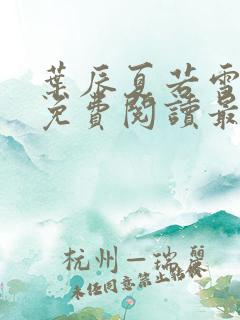 葉辰夏若雪
免費閱讀最
杭州—瑞麗
未经同意禁止转载